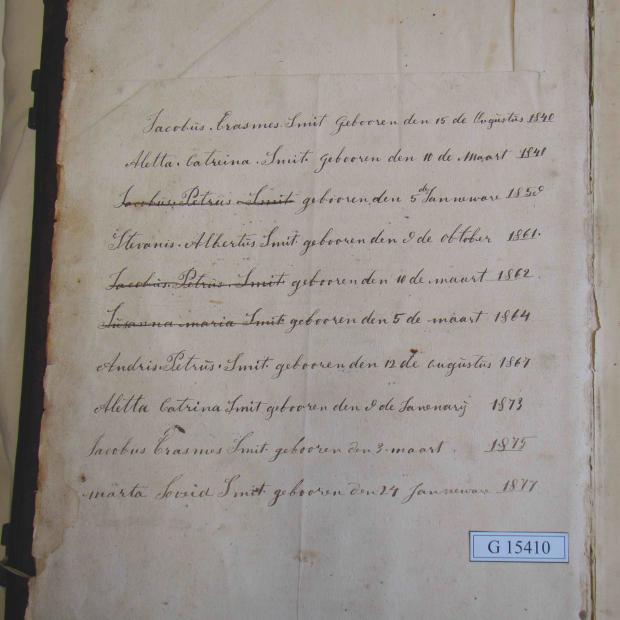 Jacobus. Erasmes Smit Gebooren den 15 de Augustus 1840
Aletta. Catreina. Smit. gebooren den 10 de Maart 1841
Jacobus. Petrus Smit gebooren den 5de Janneware
Stevanis. Albertus Smit. gebooren den 9 de october 1861.
Jacobus. Petrus Smit. gebooren den 10 de maart 1862.
Susanna maria Smit gebooren den 5 de maart 1864
Andris. Petrus. Smit. gebooren den 12 de augustus 1867
Aletta Catrina Smit gebooren den 9 de Janewarij 1873
Jacobus Erasmes Smit. gebooren den 3. maart. 1875
marta Smit. gebooren den 24 Janneware 1877
G 15410